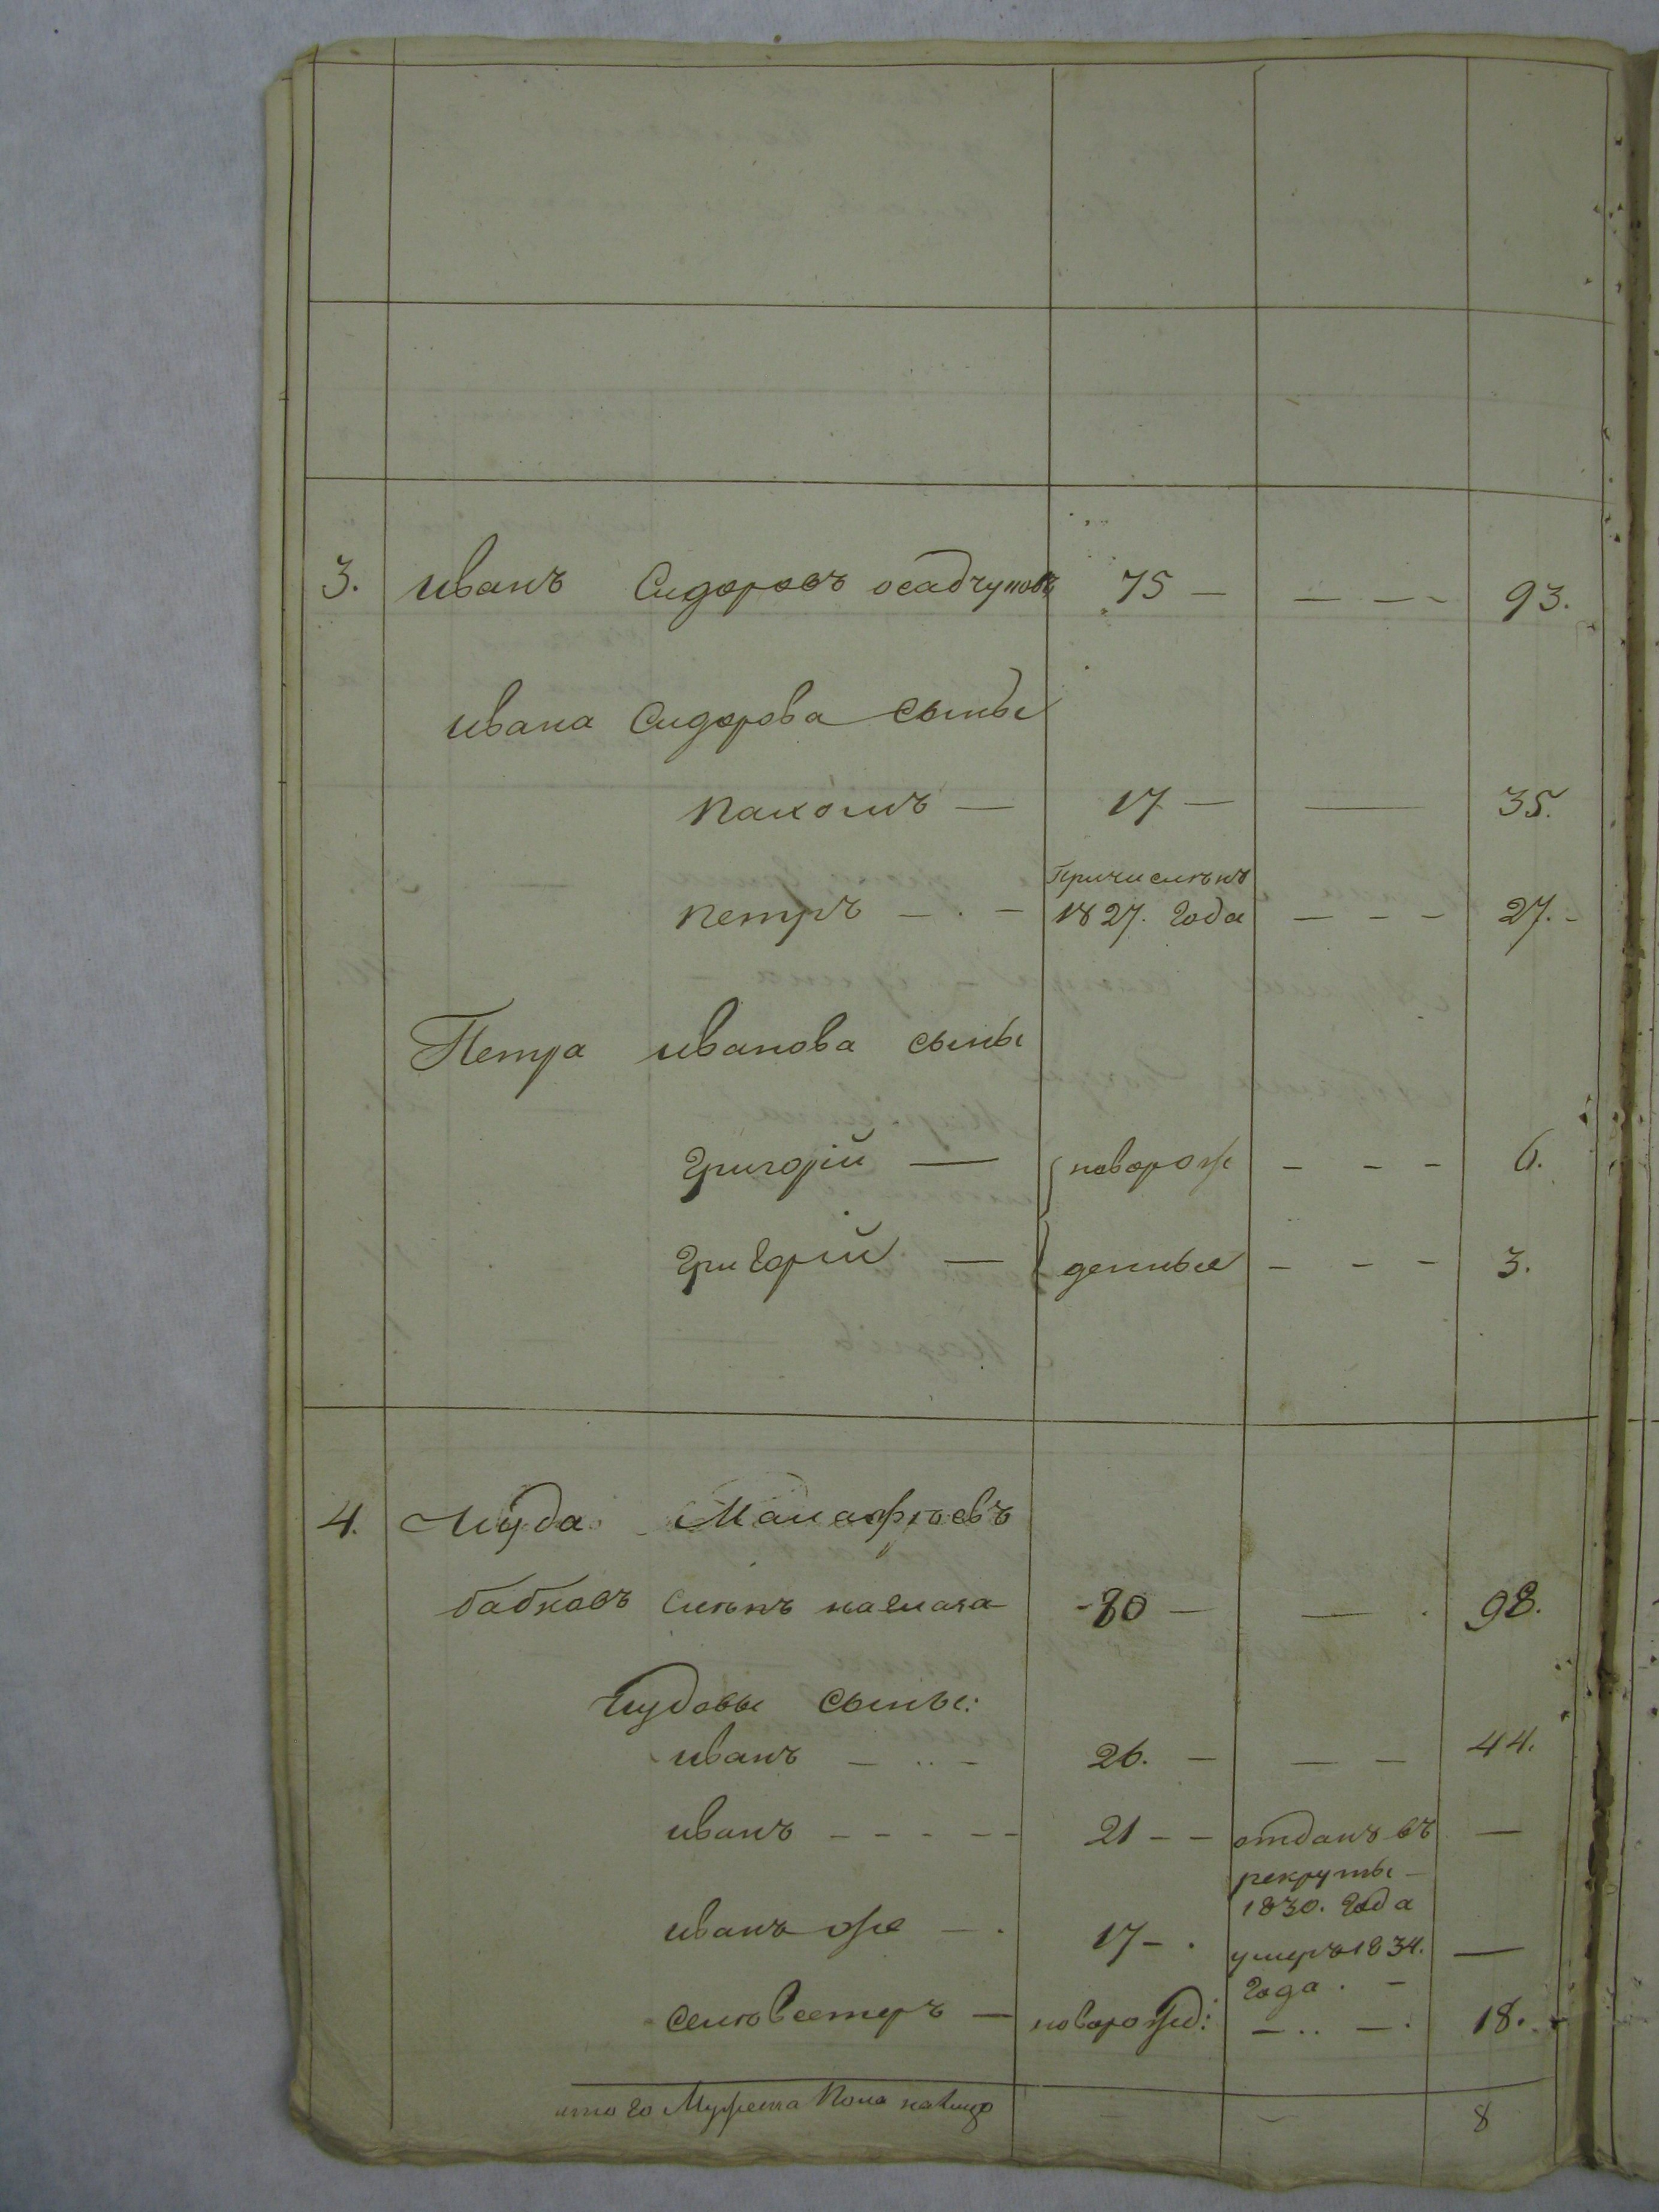 3. Иванъ Сидоровъ осадчуковъ 75 — — — - 93.
Ивана Сидорова сыны
Пахомъ — 17 — — 35.
Причисленъ
Петръ — . — 1827. Года — - - 27. -
Петра Иванова сыны
Григорій — новорож - - - 6.
Григорій — денные - - - 3.
4. Иуда
бабковъ Слѣпъ на 80 — — . 98.
Іудовы сыны:
Иванъ — .. - 26. — — — 44.
Иванъ - - - - - 21 - - отданъ въ —
рекруты -
1830. Года
Иванъ же — . 17 - . умеръ 1834. —
Года . -
Селивестръ — новорожд: — .. — . 18.
итого Мужеска Пола налицо — — 8